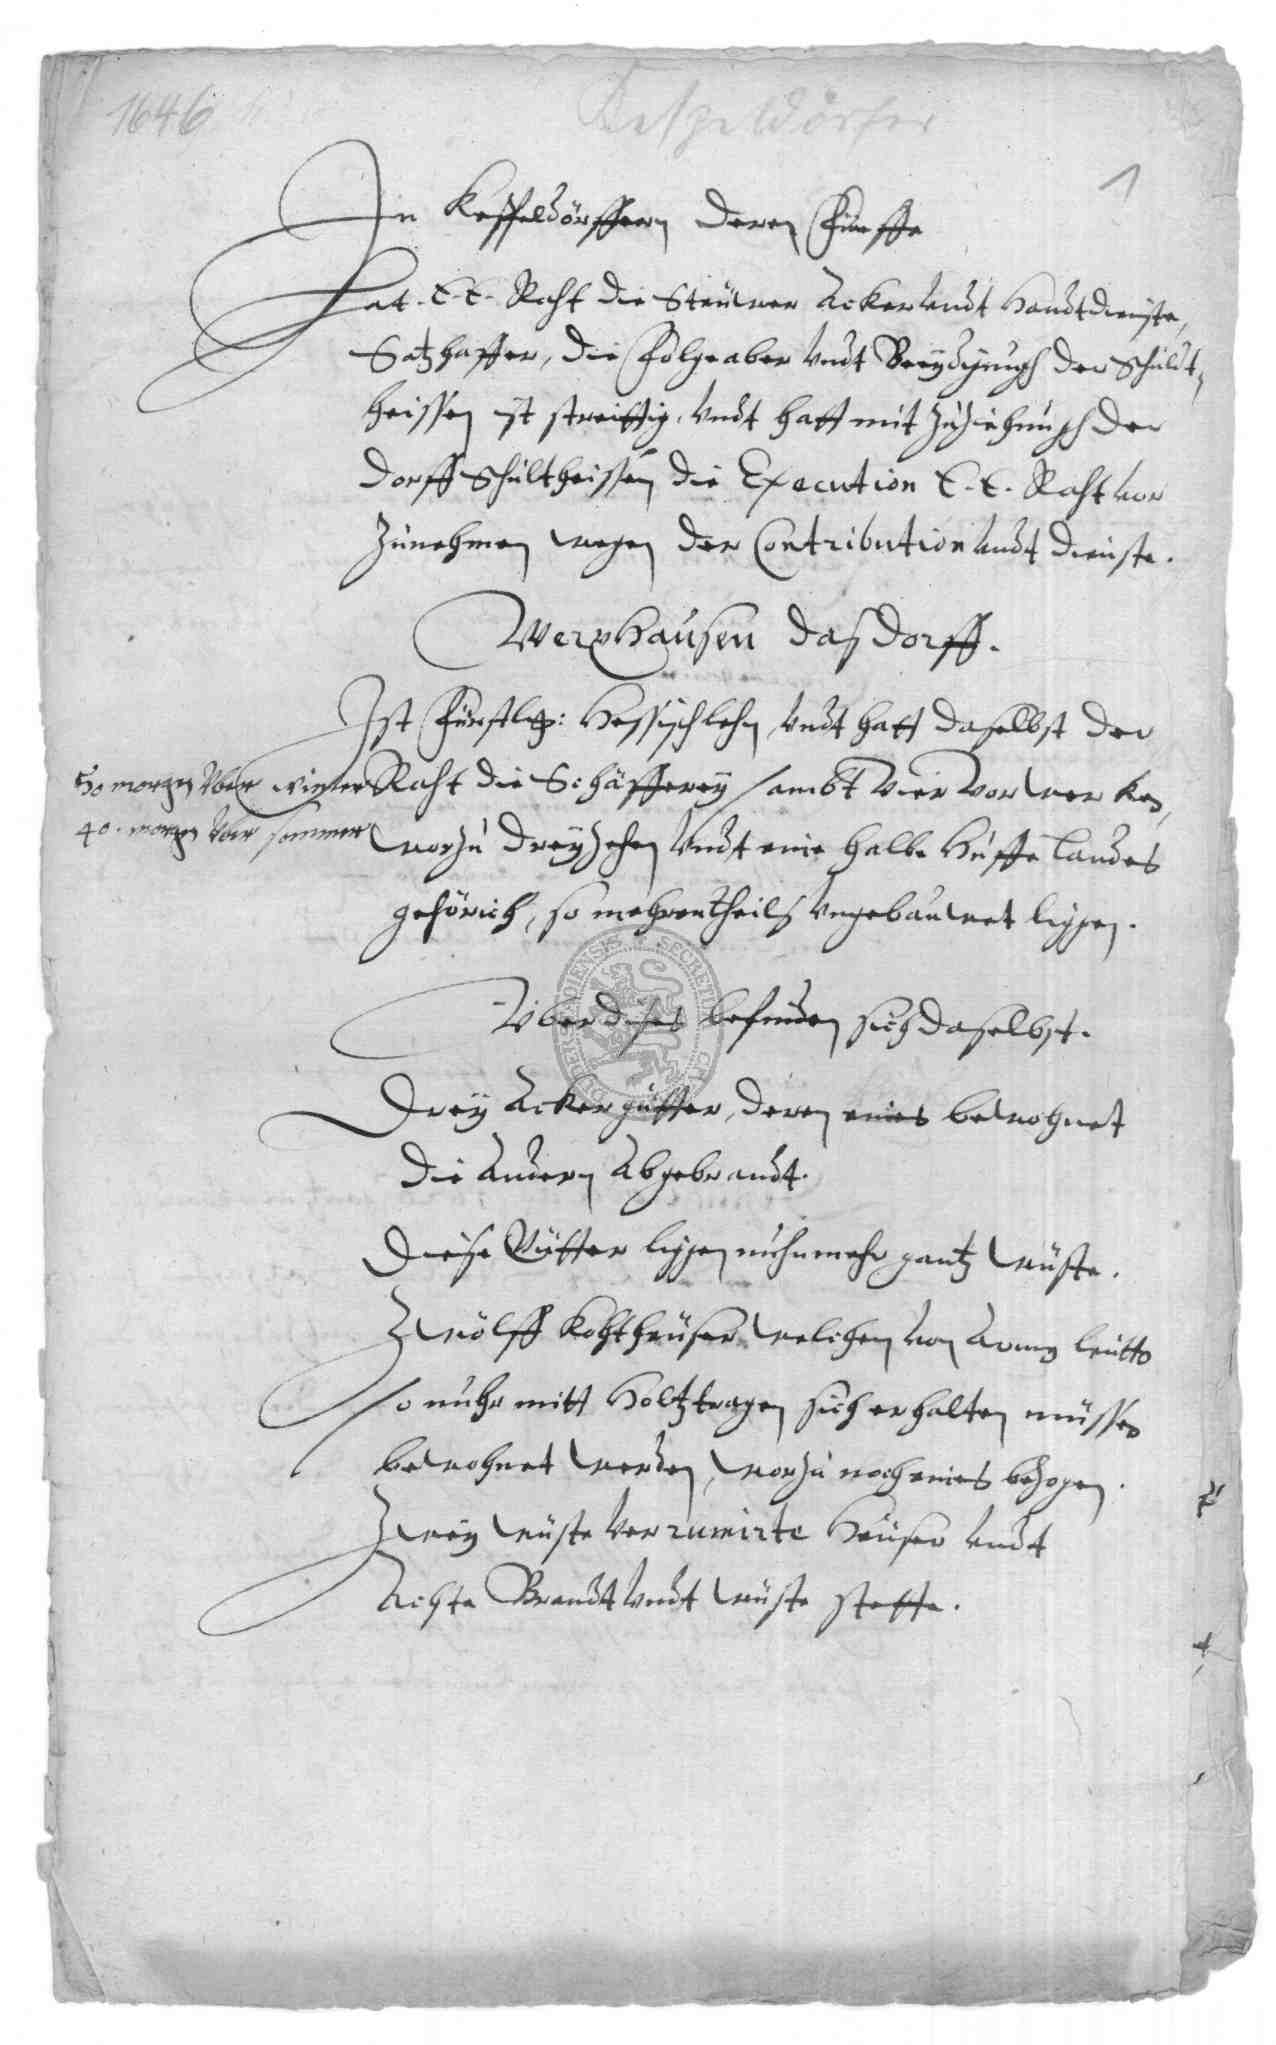 1646
Kespeldörfer
1
In Kespeldörffern deren Fünffe
Hat E. E. Raht die Steuwer Acker undt Handtdienste,
Satzhaffer, die Folge aber undt der Schuldt-
heissen ist streittig, undt hatt mit Zuziehungh der
dorff Schultheissen die Execution E. E. Raht vor
Zunehmen wegen der Contribution undt dienste.
Werxhausen das dorff.
Ist Fürstlich: Hessisch lehn, undt hatt daselbst der
50 morgen vber winter Raht die Schäfferey sambt Vier Vorwerken,
40. morgen vber sommer worzu dreyzehen undt eine halbe Huffe Landes
gehörich, so mehrentheils Ungebauwet liggen.
Über dises befinden sich daselbst.
Drey Ackergütter, deren eines bewohnet
die Andern Abgebrandt.
Diese Gütter liggen nuhnmehr gantz wüste.
Zwölff Kohthäuser welchen von Armen leutte
so nuhr mitt Holtztragen sich erhalten müssen
bewohnet werden, worzu noch eines bezogen.
Zwey wüste Verruinirte Häuser undt
Achte Brandt undt wüste stette.